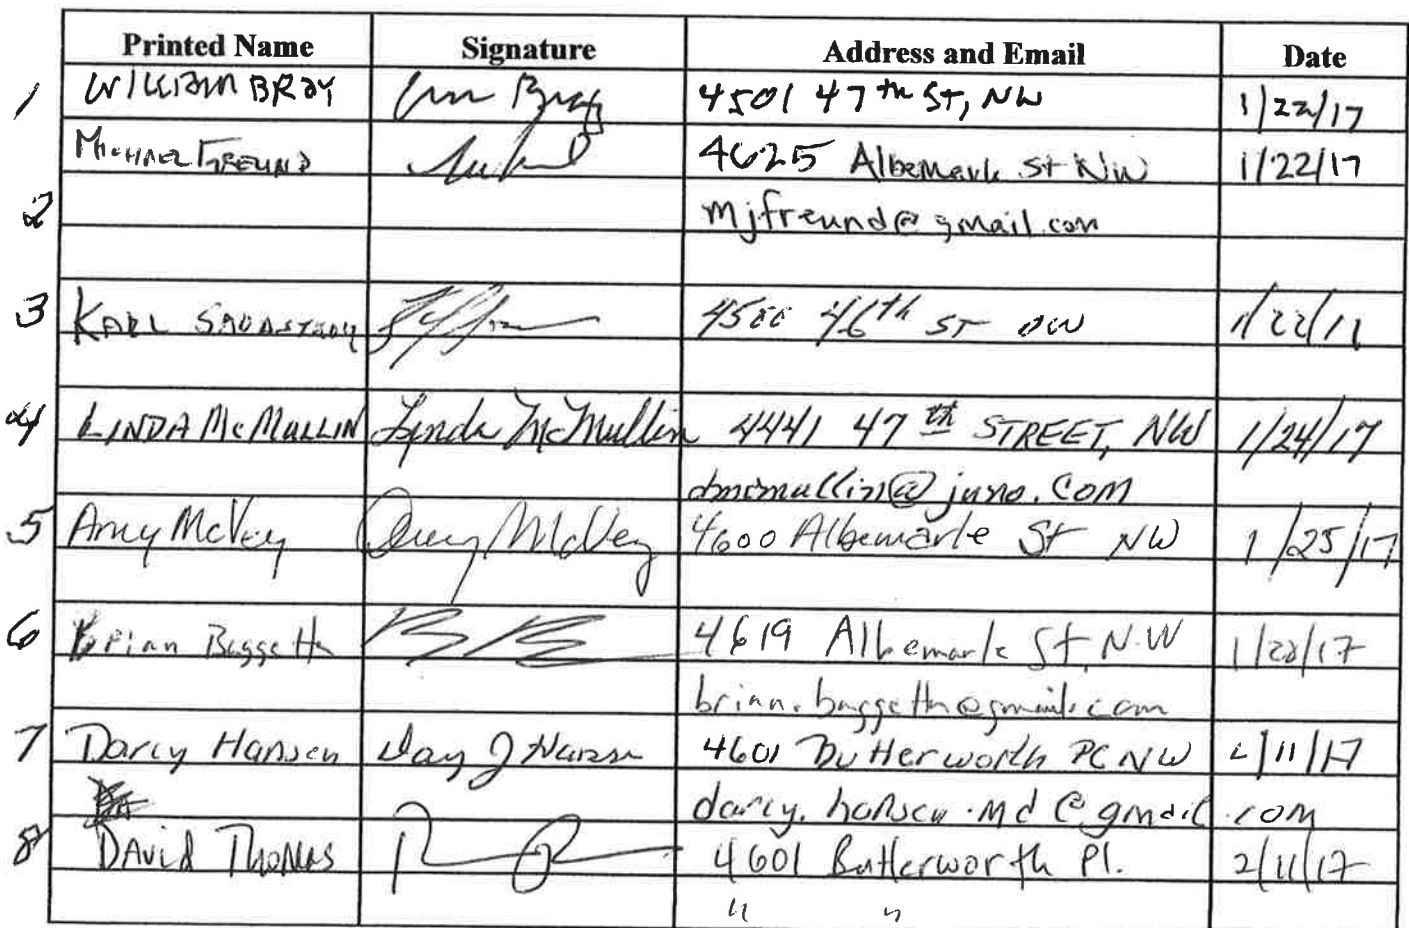 Printed Name Signature Address and Email Date
1 WILLIAM BRAY 4501 47th St, NW 1/22/17
MICHAEL FREUND 4625 Albemarle St NW 1/22/17
2 mjfreund@gmail.com
3 KARL 46th ST NW
4 LINDA McMULLIN Lynda McMullin 4441 47th STREET, NW 1/24/17
dmcmullin@juno.com
5 Amy McVey Amy McVey 4600 Albemarle St NW 1/25/17
6 Brian 4619 Albemarle St, N.W
7 Darcy Hansen 4601 Butterworth Pl NW 2/11/17
darcy.hansen.md@gmail.com
8 DAvid Thomas 4601 Butterworth Pl. 2/11/17
" "